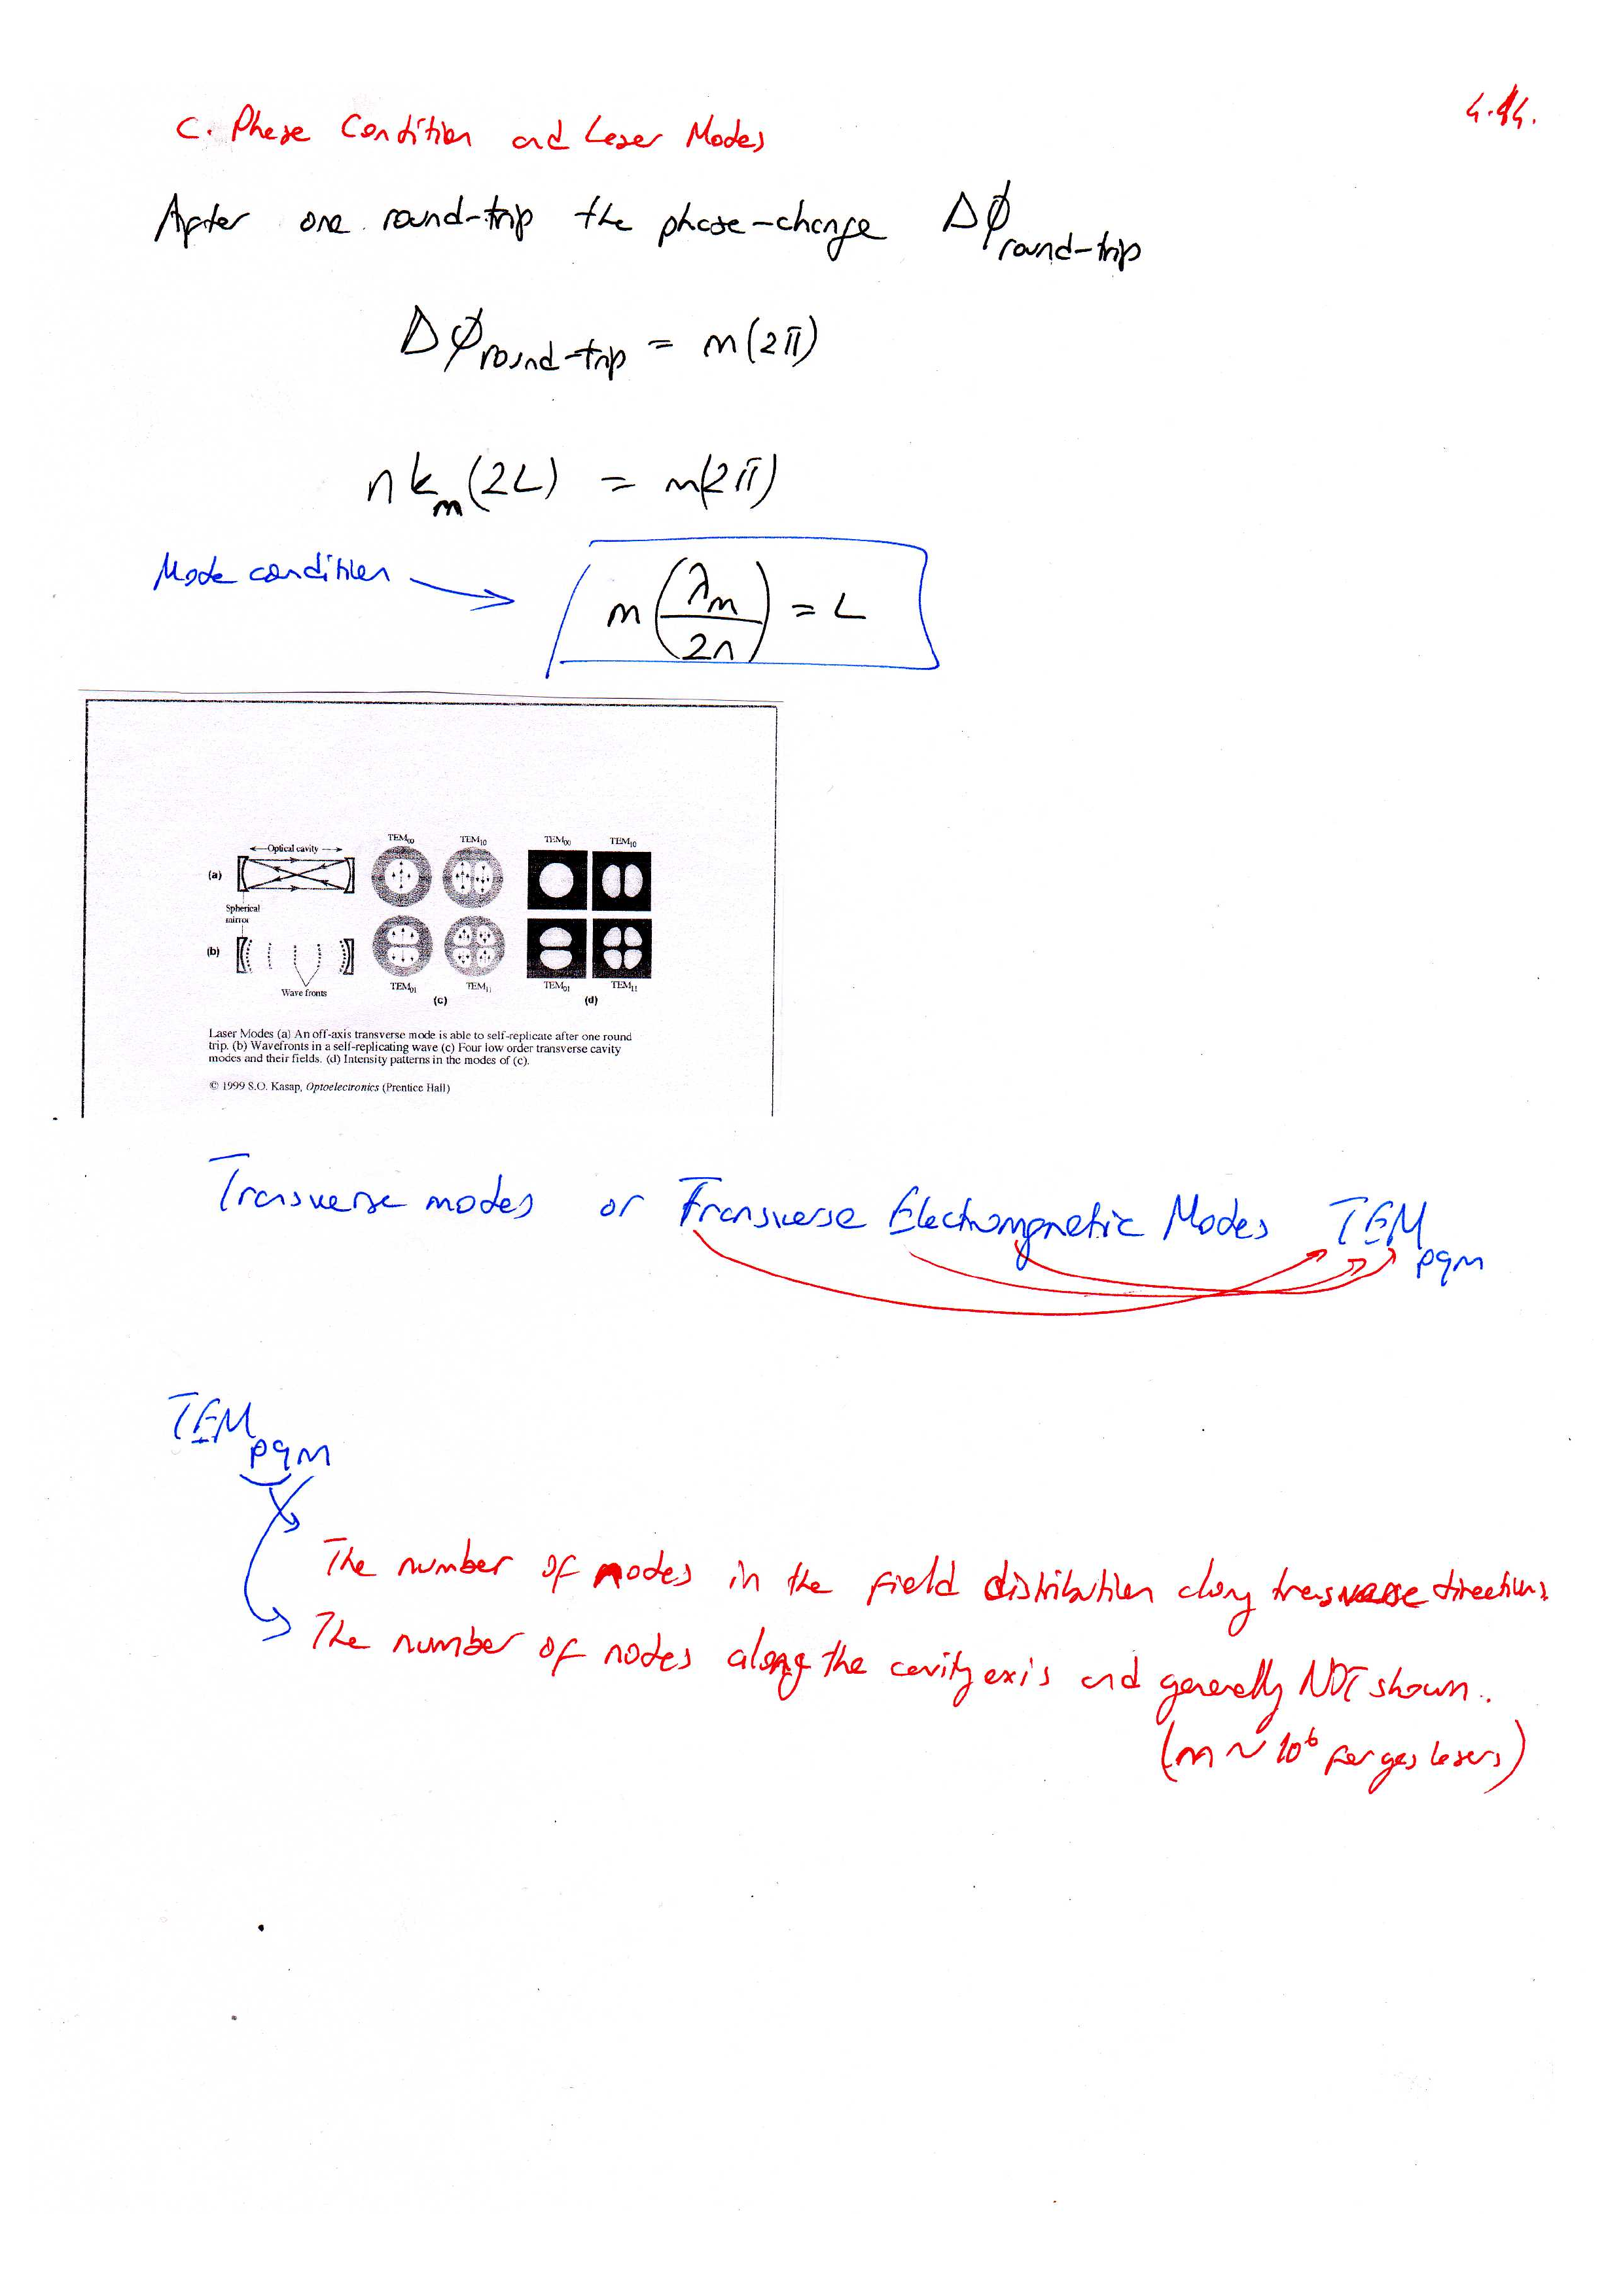 C. Phase Condition and Laser Modes
4.14.
After one round-trip the phase-change Δϕ round-trip
Δϕ round-trip = m(2π)
n k_m (2L) = m(2π)
Mode condition
m (λ_m / 2n) = L
Optical cavity
(a)
Spherical
mirror
(b)
Wave fronts
TEM00 TEM10
TEM01 TEM11
(c)
TEM00 TEM10
TEM01 TEM11
(d)
Laser Modes (a) An off-axis transverse mode is able to self-replicate after one round
trip. (b) Wavefronts in a self-replicating wave (c) Four low order transverse cavity
modes and their fields. (d) Intensity patterns in the modes of (c).
© 1999 S.O. Kasap, Optoelectronics (Prentice Hall)
Transverse modes or Transverse Electromgnetic Modes TEM pqm
TEM pqm
The number of nodes in the field distribution along transverse directions
The number of nodes along the cavity axis and generally NOT shown.
(m ~ 10^6 for gas lasers)